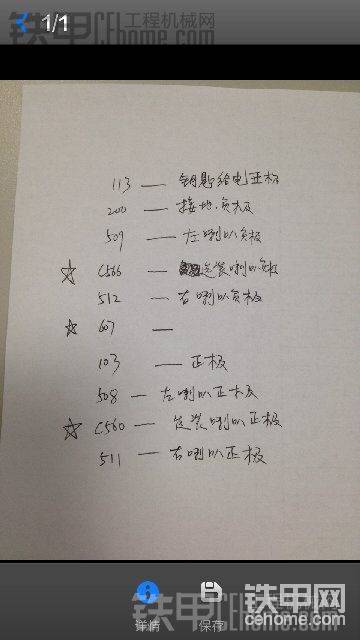 1/1
铁甲 工程机械网
CEhome.com
113 — 钥匙给电正极
200 — 接地负极
509 — 左喇叭负极
☆ C566 — 选装喇叭负极
512 — 右喇叭负极
☆ 607 —
103 — 正极
508 — 左喇叭正极
☆ C560 — 选装喇叭正极
511 — 右喇叭正极
详情 保存
铁甲网
cehome.com